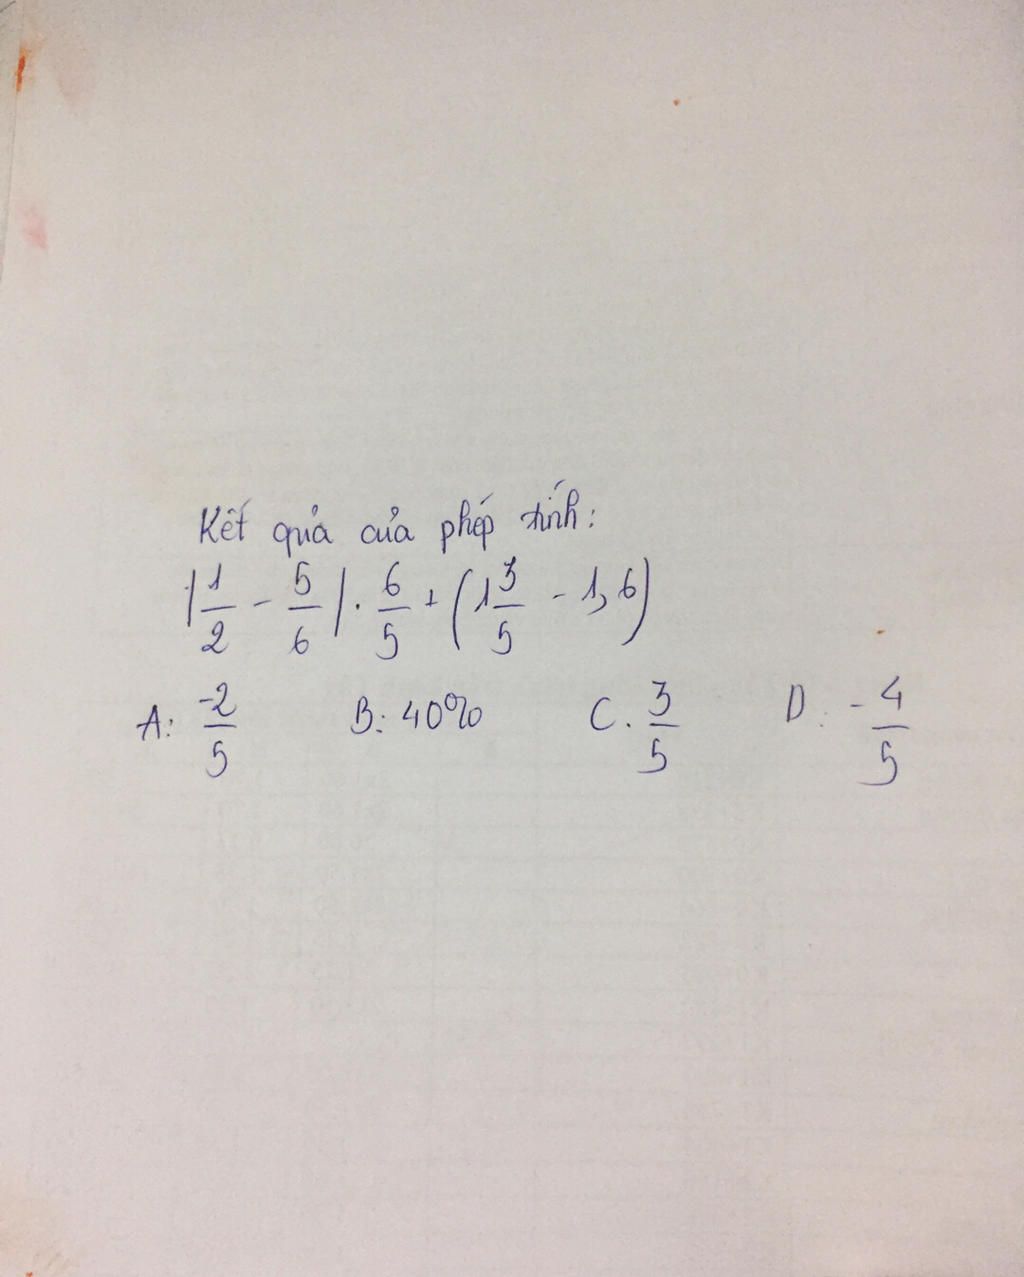 Kết quả của phép tính:
|1/2 - 5/6| . 6/5 + (1 3/5 - 1,6)
A: -2/5 B: 40% C. 3/5 D: -4/5